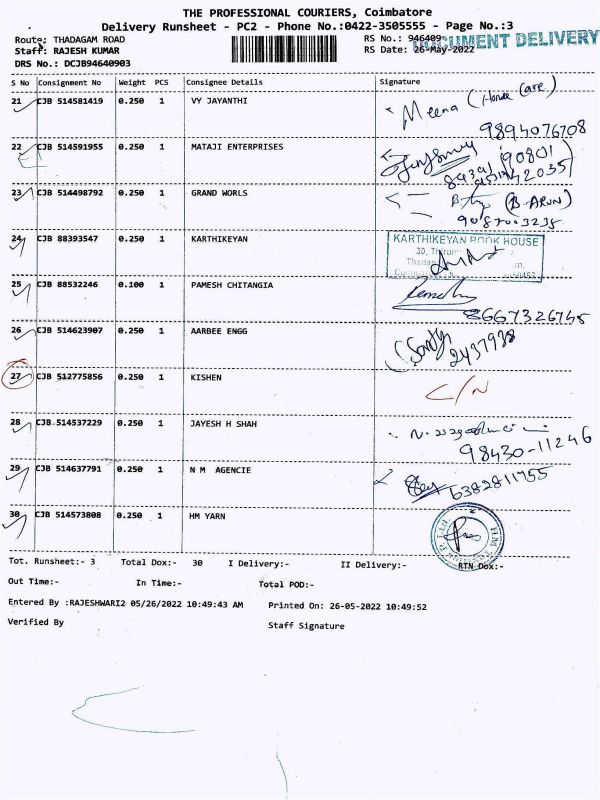 THE PROFESSIONAL COURIERS, Coimbatore
Delivery Runsheet - PC2 - Phone No.:0422-3505555 - Page No.:3
Route: THADAGAM ROAD RS No.: 946409
Staff: RAJESH KUMAR RS Date: 26-May-2022 DOCUMENT DELIVERY
DRS No.: DCJB94640903
S No Consignment No Weight PCS Consignee Details Signature
21 CJB 514581419 0.250 1 VY JAYANTHI Meena (House Care)
9894076708
22 CJB 514591955 0.250 1 MATAJI ENTERPRISES
23 CJB 514498792 0.250 1 GRAND WORLS (B-ARUN)
9087003235
24 CJB 88393547 0.250 1 KARTHIKEYAN KARTHIKEYAN BOOK HOUSE
25 CJB 88532246 0.100 1 PAMESH CHITANGIA
8667326745
26 CJB 514623907 0.250 1 AARBEE ENGG
2437938
27 CJB 512775856 0.250 1 KISHEN C/N
28 CJB 514537229 0.250 1 JAYESH H SHAH
98430-11246
29 CJB 514637791 0.250 1 N M AGENCIE 6382811755
30 CJB 514573808 0.250 1 HM YARN
Tot. Runsheet:- 3 Total Dox:- 30 I Delivery:- II Delivery:- RTN Dox:-
Out Time:- In Time:- Total POD:-
Entered By :RAJESHWARI2 05/26/2022 10:49:43 AM Printed On: 26-05-2022 10:49:52
Verified By Staff Signature